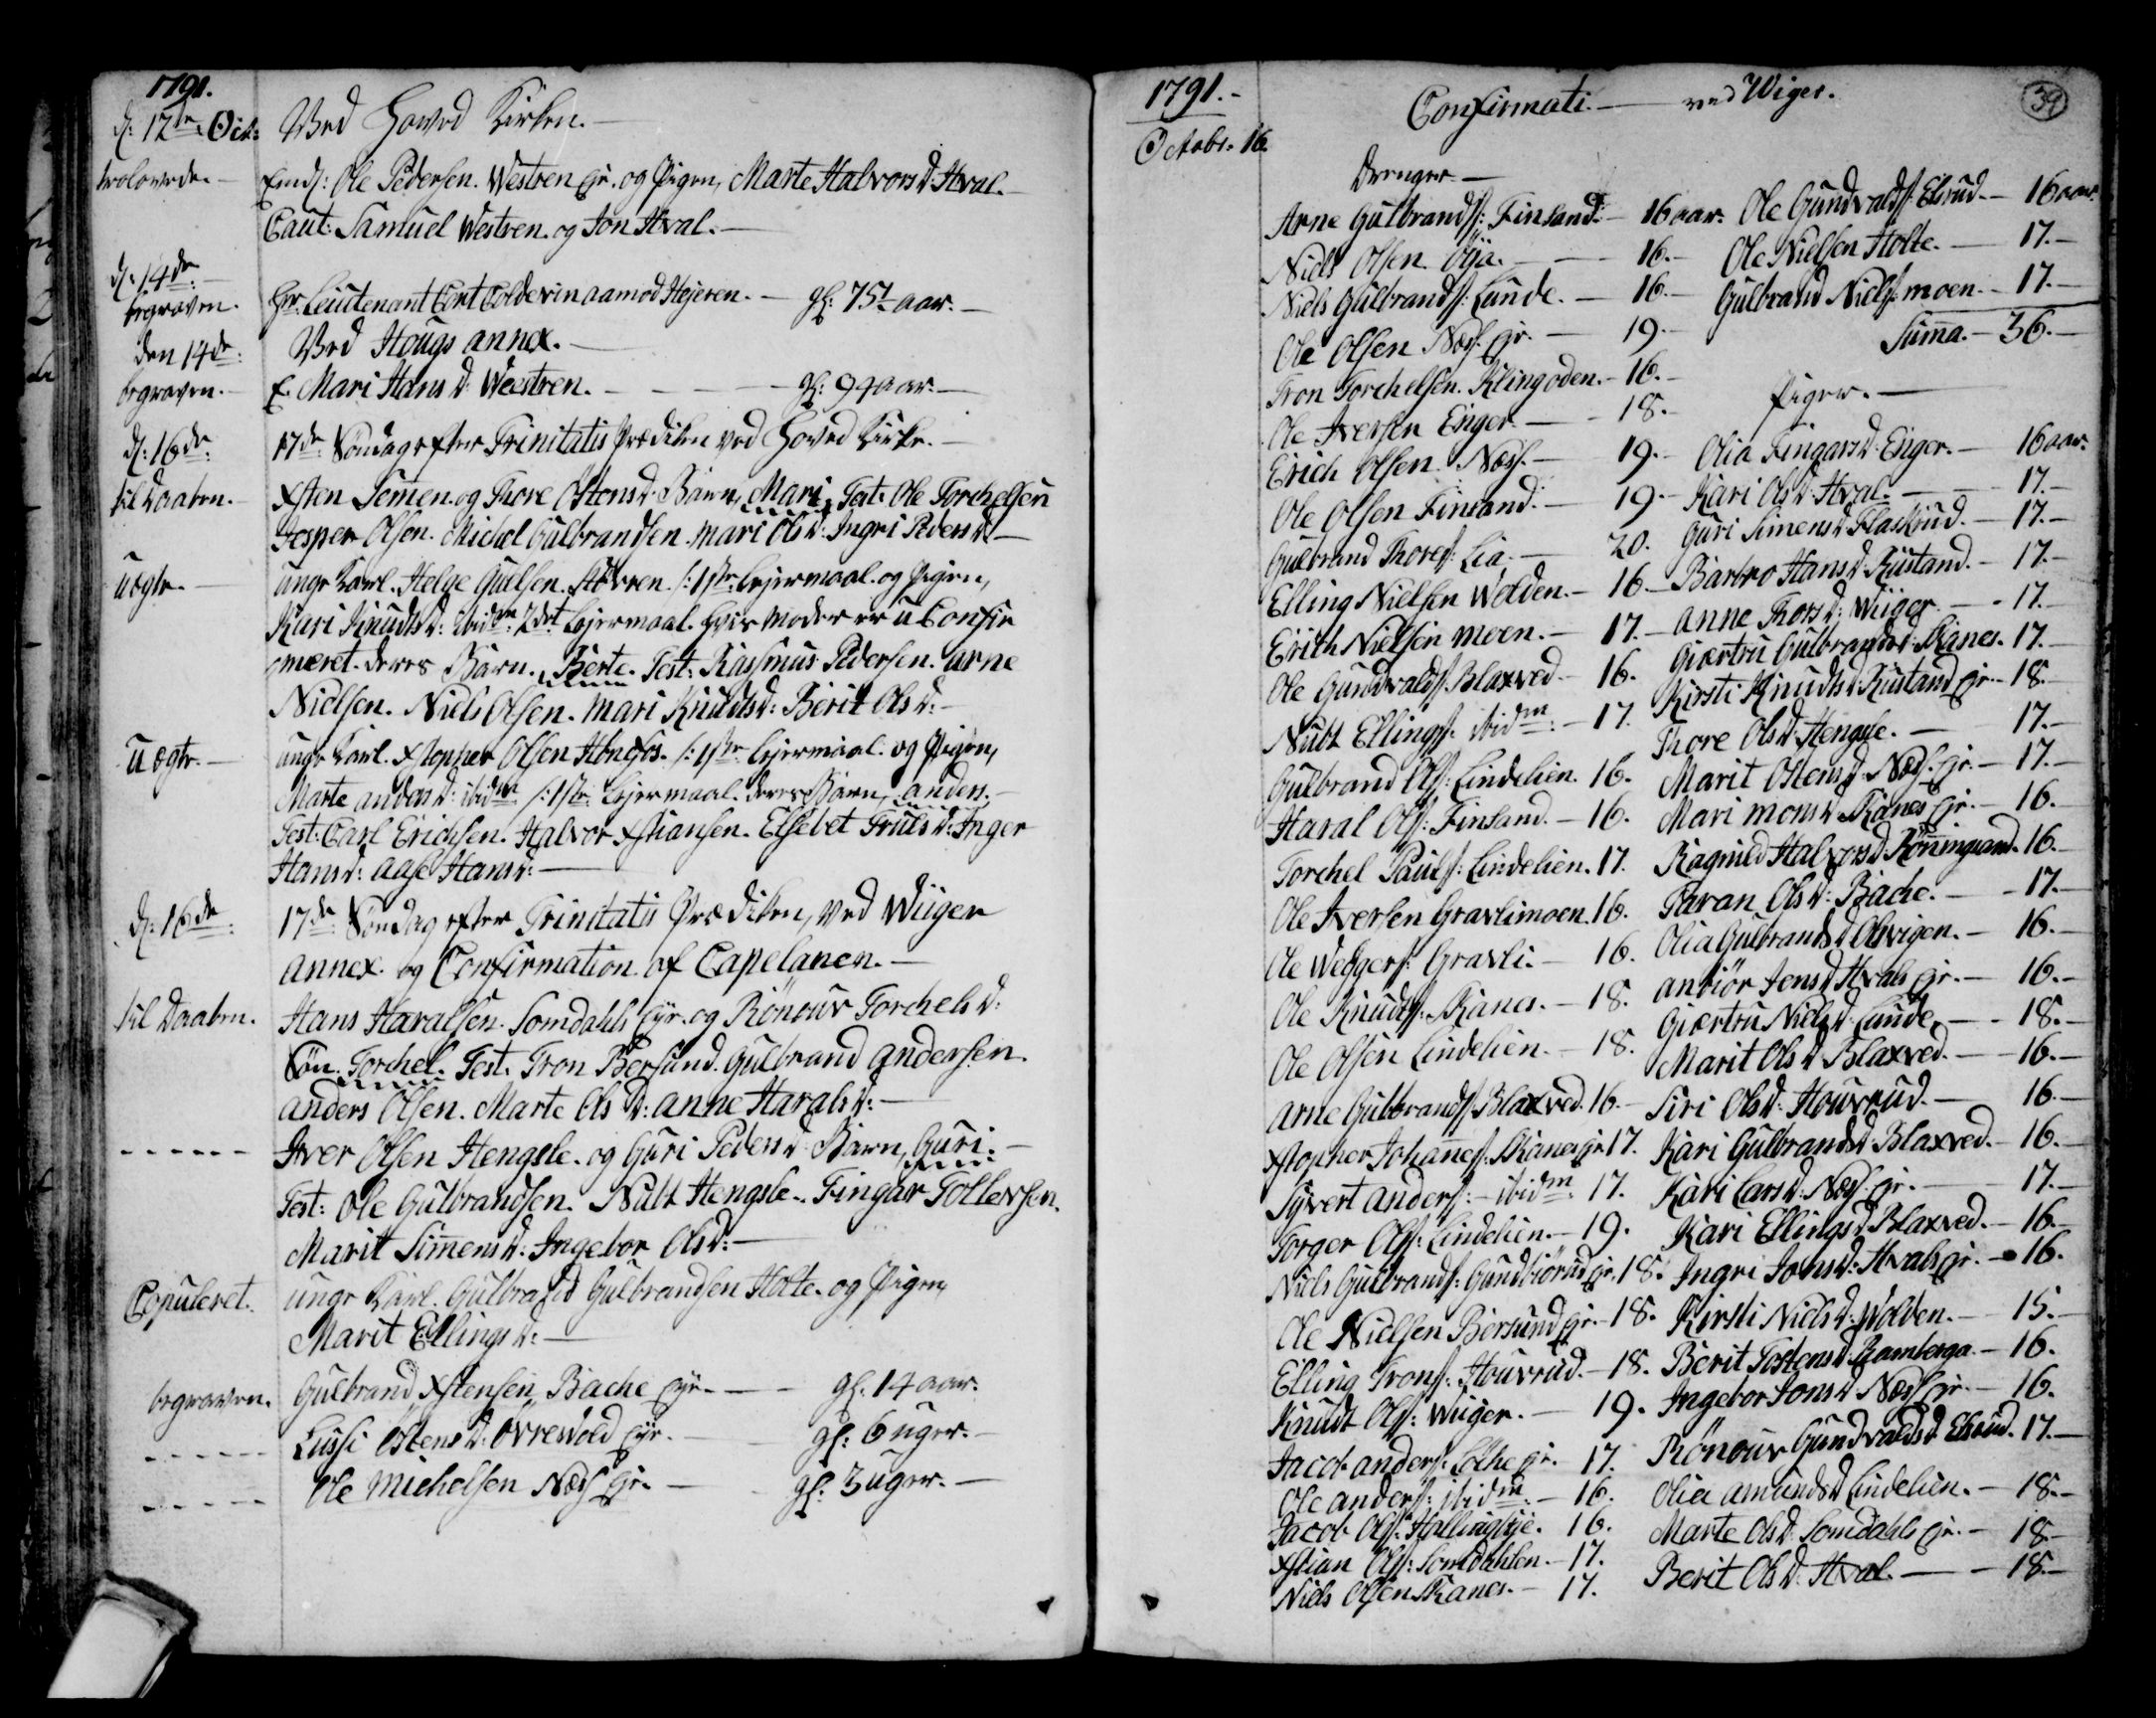 1791.
d: 12te Oct: Ved Hoved Kirken.
trolovede. Emd: Ole Pedersen. Westren Ejr. og Pigen, Marte Halvorsd: Hval.
Caut: Samuel Westren. og Jon Hval.
d: 14de
begraven. Hr. Leutenant Cort Coldevin aamod Hejeren. gl: 75 1/2 aar.
den 14de: Ved Hougs annex.
begraven. E. Mari Hansd: Weestren. gl: 94 aar.
d: 16de: 17de Søndag efter Trinitatis Prædiken ved Hoved Kirke.
til Daaben. Xsten Semen. og Thore Ostensd: Barn, Mari, Test: Ole Torchelsen
Jesper Olsen. Michel Gulbrandsen. Mari Olsd: Ingri Pedersd:
uægte. unge Karl. Helge Gulsen. /:1ste Lejermaal. og Pigen,
Kari Knudsd: ibidm: 2det Lejermaal. hvis moder er u Confir
meret. deres Barn. Berte. Test: Rasmus Pedersen. Arne
Nielsen. Niels Olsen. Mari Knudsd: Berit Olsd:
uægte. unge Karl. Xstopher Olsen Hønefos. /:1ste Lejermaal. og Pigen,
Marte andersd: ibidm /:1ste Lejermaal. deres Barn, anders.
Test: Carl Erichsen. Halvor Xstiansen. Elsebet Trulsd: Inger
Hansd: aase Hansd:
d: 16de: 17de Søndag efter Trinitatis Prædiken, ved Wiiger
annex. og Confirmation. af Capelanen.
til Daaben. Hans Haralsen. Somdahls Ejr. og Rønouv Torchelsd:
Søn. Torchel. Test. Tron Bersund. Gulbrand andersen.
anders Olsen. Marte Olsd: anne Haralsd:
- - - - - - Iver Olsen Hengsle. og Guri Pedersd: Barn, Guri:
Test: Ole Gulbrandsen. Nubt Hengsle. Fingar Tollevsen.
Marit Simensd: Ingebor Olsd:
Copuleret. unge Karl. Gulbrand Gulbrandsen Holte. og Pigen,
Marit Ellingsd:
begraven. Gulbrand Xstensen, Bache Ejr. gl: 14 aar.
- - - - - Lussi Ostensd: Ovrevold Ejr. gl: 6 uger.
- - - - - Ole Michelsen Næss Ejr. gl: 3 uger.
1791. Confirmati. ved Wiger. 39
Octobr. 16.
Drenger.
Arne Gulbrands: Finsand. 16 aar.
Niels Olsen Øja. 16.
Niels Gulbrands: Lunde. 16.
Ole Olsen Næs Ejr. 19.
Tron Torchelsen. Klingoden. 16.
Ole Iversen Enger 18.
Erich Olsen. Næss. 19.
Ole Olsen Finsand. 19.
Gulbrand Thores: Lia. 20.
Elling Nielsen Wolden. 16.
Erich Nielsen moen. 17.
Ole Gundvalds: Blaxved. 16.
Nubt Ellings: ibidm: 17.
Gulbrand Ols: Lindelien. 16.
Haral Ols: Finsand. 16.
Torchel Pauls: Lindelien. 17.
Ole Iversen Gravlimoen. 16.
Ole Weggers: Gravli. 16.
Ole Knuds: Skanes. 18.
Ole Olsen Lindelien. 18.
Arne Gulbrands: Blaxved. 16.
Xstopher Johañes: Skanes Ejr. 17.
Syvert anders: ibidm: 17.
Torger Ols: Lindelien. 19.
Niels Gulbrands: Gundbiørud Ejr. 18.
Ole Nielsen Bersund Ejr. 18.
Elling Trons: Houvrud. 18.
Knudt Ols: Wiiger. 19.
Jacob anders: Lølhe Ejr. 17.
Ole anders: ibidm: 16.
Jacob Ols: Hallingbye. 16.
Xstian Ols: Somdahlen. 17.
Niels Olsen Skanes. 17.
Ole Gundvalds: Elsrud. 16 aar.
Ole Nielsen Holte. 17.
Gulbrand Niels: moen. 17.
Suma. 36.
Piger.
Olia Fingarsd: Enger. 16 aar.
Kari Olsd: Hval. 17.
Guri Simensd: Flaskrud. 17.
Barbro Hansd: Rustand. 17.
Anne Thorsd: Wiiger. 17.
Giertru Gulbrandsd: Skanes. 17.
Kirsti Knudsd: Rustand Ejr. 18.
Thore Olsd: Hengsle. 17.
Marit Ostensd: Næss: Ejr. 17.
Mari monsd: Skanes Ejr. 16.
Ragnild Halvorsd: Rønningsand. 16.
Paran Olsd: Bache. 17.
Olia Gulbrandsd: Olsvigen. 16.
anbiør Jensd: Hvals Ejr. 16.
Giertru Nielsd: Lunde. 18.
Marit Olsd: Blaxved. 16.
Siri Olsd: Houvrud. 16.
Kari Gulbrandsd: Blaxved. 16.
Kari Larsd: Næss: Ejr. 17.
Kari Ellingsd: Blaxved. 16.
Ingri Jonsd: Hvals Ejr. 16.
Kirsti Nielsd: Wolden. 15.
Berit Tostensd: Ramberga. 16.
Ingebor Jonsd: Næss Ejr. 16.
Rønouv Gundvaldsd: Elsrud. 17.
Olia amundsd: Lindelien. 18.
Marte Olsd: Somdahls Ejr. 18.
Berit Olsd: Hval. 18.